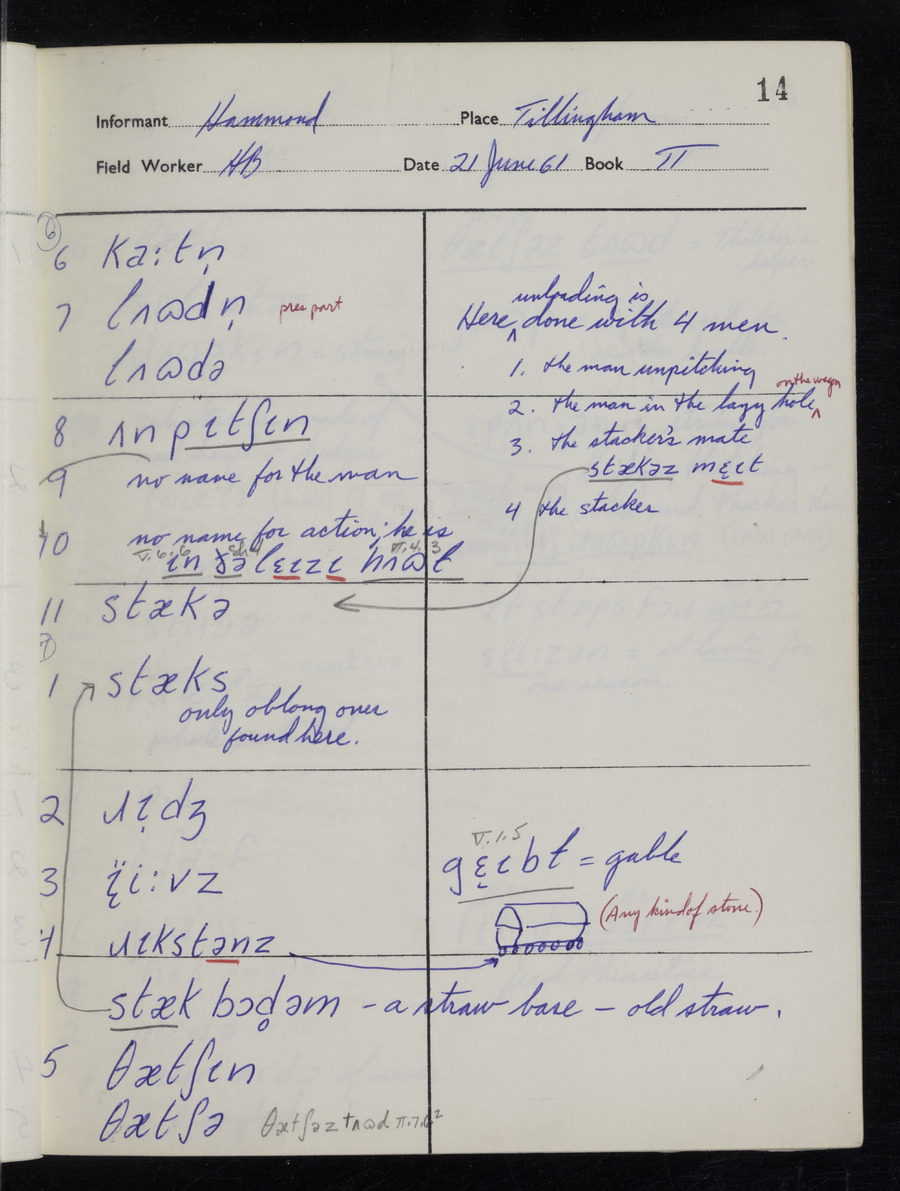 14
Informant Hammond Place Tillingham
Field Worker HB Date 21 June 61 Book II
6
6 ka:tn̩
7 lʌɷdn̩ pres part
lʌɷdə
8 ʌnpɩtʃɩn
9 no name for the man
10 no name for action; he is
V.6.6 II.4.3
ɩn ɣə lɛɩzɩ hʌɷt
11 stækə
7
1 stæks
only oblong ones
found here.
2 ɹɩ̣dʒ
3 ɩ̈i:vz
4 ɹɩkstənz
stæk bɔd̥əm - a straw base - old straw.
5 θætʃɩn
θætʃə θætʃəz tʌɷd II.7.6²
unloading is
Here ʌ done with 4 men.
1. the man unpitching
on the wagn
2. the man in the lazy hole ʌ
3. the stacker's mate
stækəz mɛɩt
4 the stacker
V.1.5
gɛ̣ɩbt = gable
(Any kind of stone.)